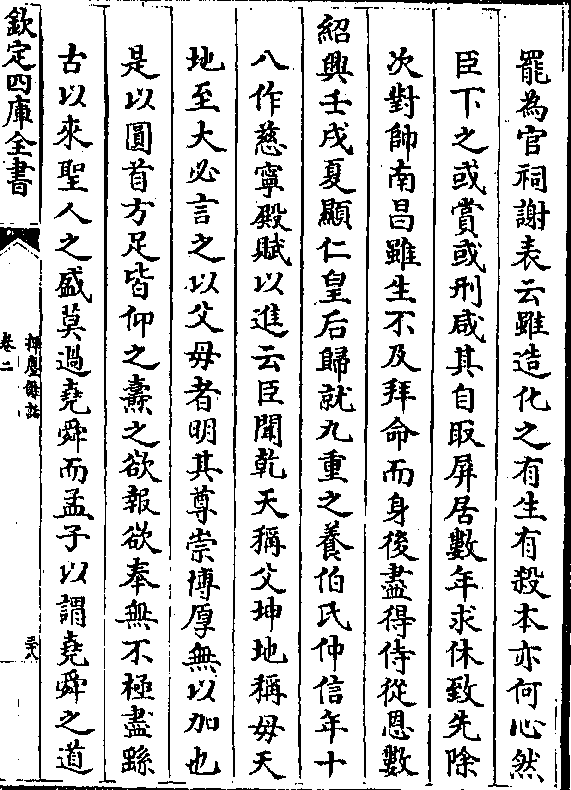 罷為官祠謝表云雖造化之有生有殺本亦何心然
臣下之或賞或刑咸其自取屏居數年求休致先除
次對帥南昌雖生不及拜命而身後盡得侍從恩數
紹興壬戌夏顯仁皇后歸就九重之養伯氏仲信年十
八作慈寧殿賦以進云臣聞乾天稱父坤地稱母天
地至大必言之以父母者明其尊崇博厚無以加也
是以圓首方足皆仰之燾之欲報欲奉無不極盡繇
古以來聖人之盛莫過堯舜而孟子以謂堯舜之道
欽定四庫全書
揮麈餘話
卷二
三十八